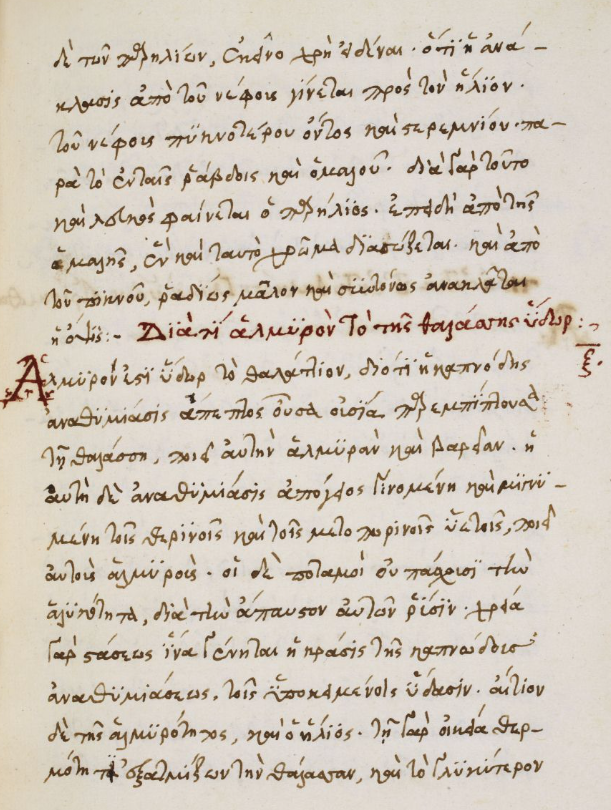 δὲ τῶν παρηλίων, ἐκεῖνο χρὴ εἰδέναι· ὅτι ἡ ἀνά-
κλασις ἀπὸ τοῦ νέφους γίνεται πρὸς τὸν ἥλϊον·
τοῦ νέφους πϋκνοτέρου ὄντος καὶ στερεμνίου· πα-
ρὰ τὸ ἐν ταῖς ῥάβδοις καὶ ὁμαλοῦ· διὰ γὰρ τοῦτο
καὶ λευκὸς φαίνεται ὁ παρήλιος· ἐπειδὴ ἀπὸ τῆς
ὁμαλῆς, ἓν καὶ ταυτὸ χρῶμα δϊασώζεται· καὶ ἀπὸ
τοῦ πϋκνοῦ, ῥαδίως μᾶλλον καὶ συντόνως ἀνακλᾶται
ἡ ὄψις:- Διὰ τί ἁλμϋρὸν τὸ τῆς θαλάσσης ὕδωρ:-
Ἁλμϋρόν ἐστὶ ὕδωρ τὸ θαλάττιον, διότι ἡ καπνώδης ξ.
ἀναθϋμίασις ἄπεπτος οὖσα οὐσία παρεμπίπτουσα
τῇ θαλάσσῃ, ποιεῖ αὐτὴν ἁλμϋρὰν καὶ βαρεῖαν· ἡ
αὐτὴ δὲ ἀναθϋμίασις ἀπόγειος γινομένη καὶ μϊγνϋ-
μένη τοῖς θερϊνοῖς καὶ τοῖς μετοπωρινοῖς ὑετοῖς, ποιεῖ
αὐτοὺς ἁλμϋροὺς· οἱ δὲ ποταμοὶ οὐ πάσχουσϊ τὴν
ἁλϋκότητα, διὰ τὴν ἄπαυστον αὐτῶν ῥϋσιν· χρεία
γὰρ στάσεως ἵνα γένηται ἡ κρᾶσις τῆς καπνώδους
ἀναθϋμιάσεως, τοῖς ὑποκειμένοις ὕδασιν· αἴτιον
δὲ τῆς ἁλμϋρότητος, καὶ ὁ ἥλιος· τῇ γὰρ οἰκεία θερ-
μότητι ἐξατμίζων τὴν θάλασσαν, καὶ τὸ γλϋκύτερον